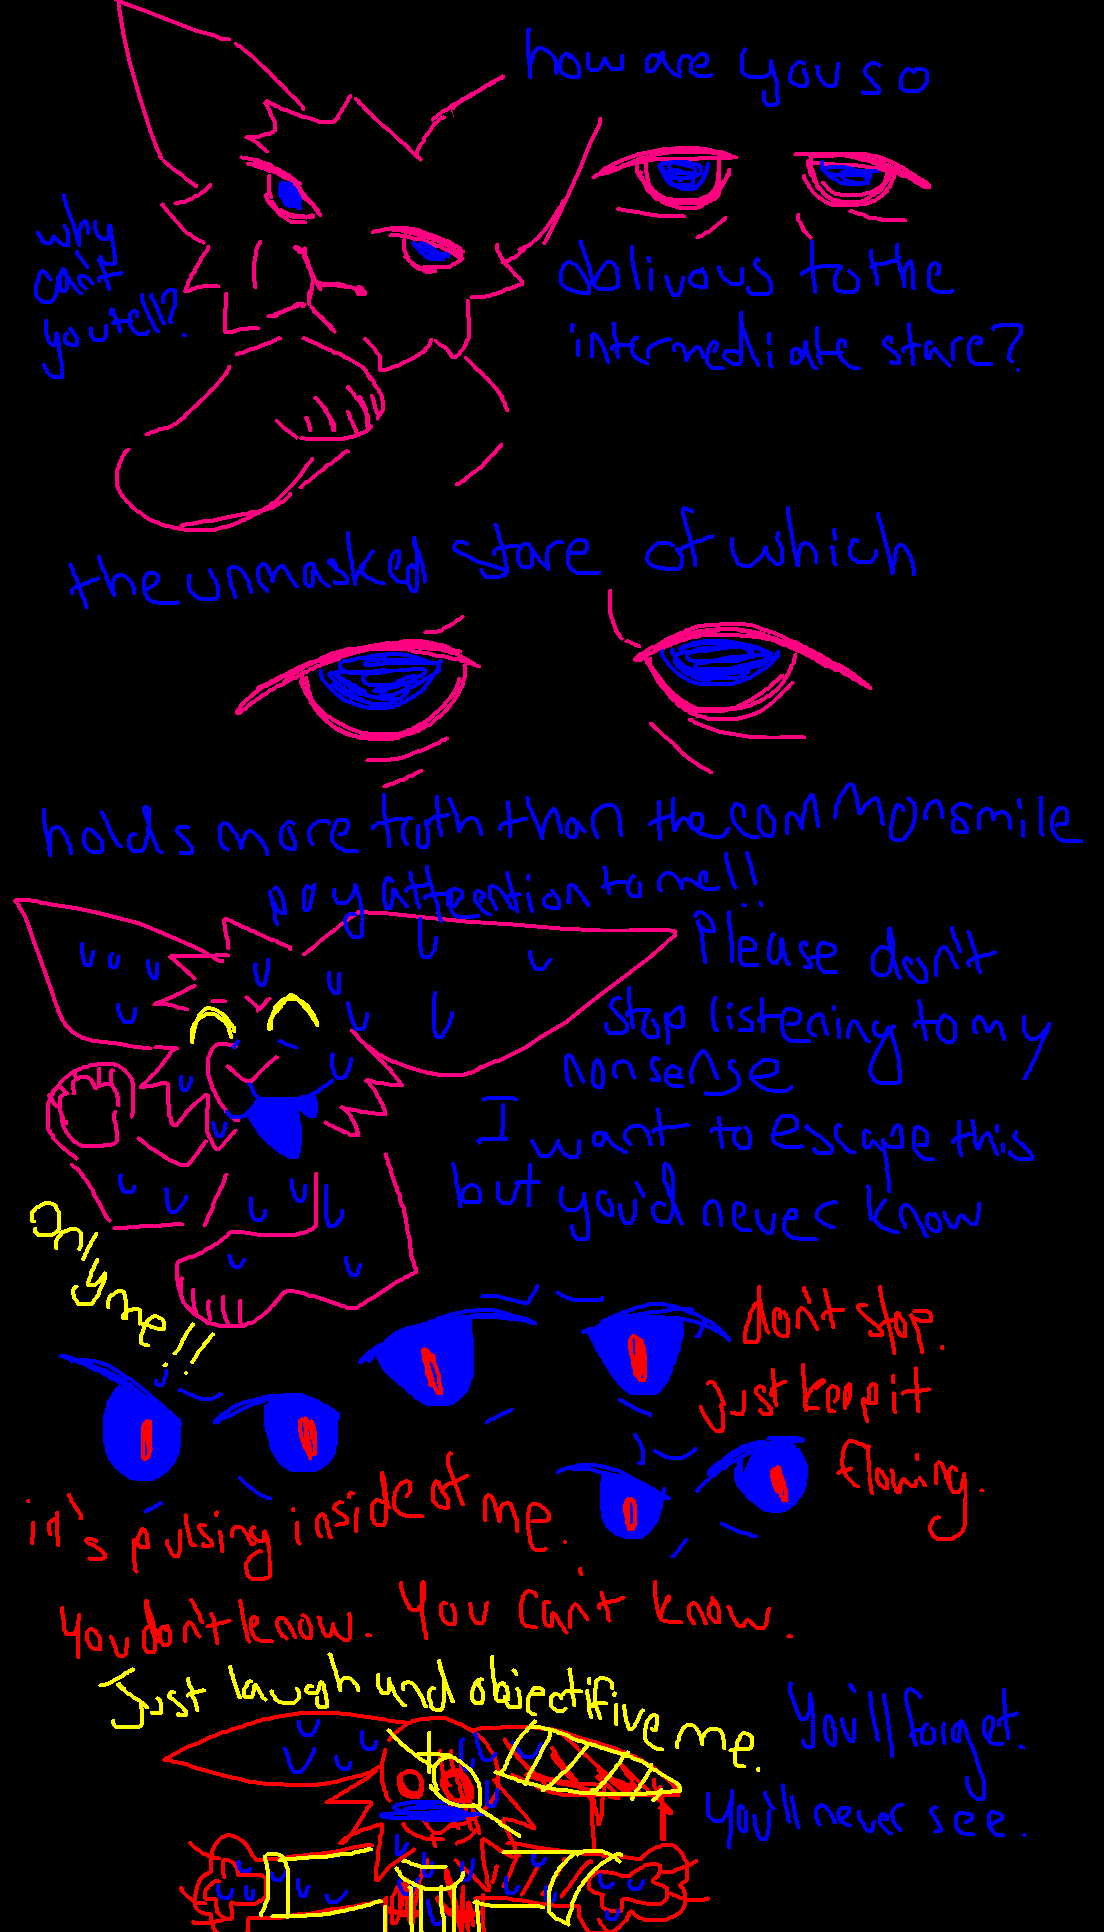 how are you so
why
can't
you tell?
oblivous to the
intermediate stare?
the unmasked stare of which
holds more truth than the common smile
pay atteention to me!!
Please don't
stop listening to my
nonsense
I want to escape this
but you'd never know
Only me!!
don't stop.
just keep it
flowing.
it's pulsing inside of me.
You don't know. You can't know.
Just laugh und objectifive me.
You'll forget.
You'll never see.